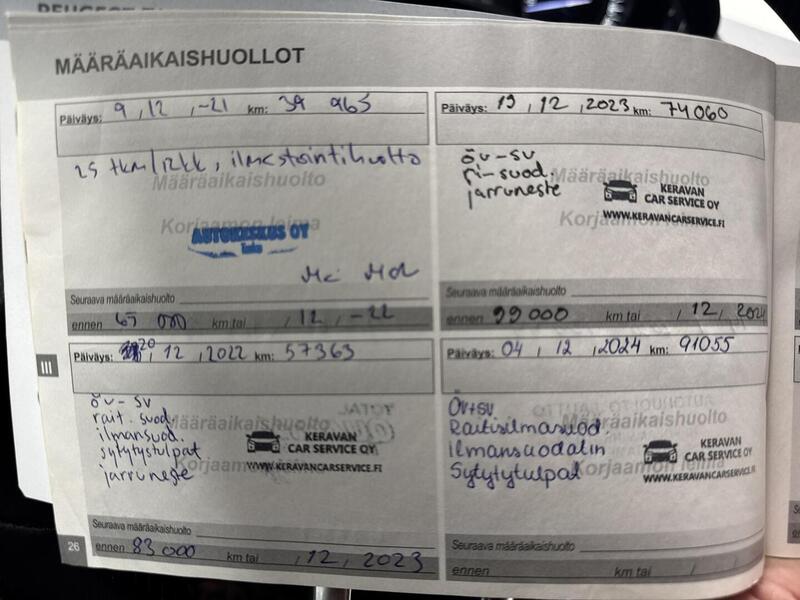 PEUGEOT
MÄÄRÄAIKAISHUOLLOT
Päiväys: 9, 12, -21 km: 39 965
25 tkm/12kk, ilmestointihuolto
Määräaikaishuolto
Korjaamon leima
AUTOKESKUS OY
Seuraava määräaikaishuolto
ennen 65 000 km tai , 12, -22
Päiväys: 20, 12, 2022 km: 57363
öv-sv
rait. suod.
ilmansuod.
sytytystulpat
jarruneste
Määräaikaishuolto
Korjaamon leima
KERAVAN
CAR SERVICE OY
WWW.KERAVANCARSERVICE.FI
Seuraava määräaikaishuolto
ennen 83 000 km tai , 12, 2023
Päiväys: 19, 12, 2023 km: 74060
öv-sv
ri-suod.
jarruneste
Määräaikaishuolto
Korjaamon leima
KERAVAN
CAR SERVICE OY
WWW.KERAVANCARSERVICE.FI
Seuraava määräaikaishuolto
ennen 99000 km tai , 12, 2024
Päiväys: 04, 12, 2024 km: 91055
Öv+sv
Raitisilmasuod.
Ilmansuodatin
Sytytytulpat
Määräaikaishuolto
Korjaamon leima
KERAVAN
CAR SERVICE OY
WWW.KERAVANCARSERVICE.FI
Seuraava määräaikaishuolto
ennen km tai /
III
26